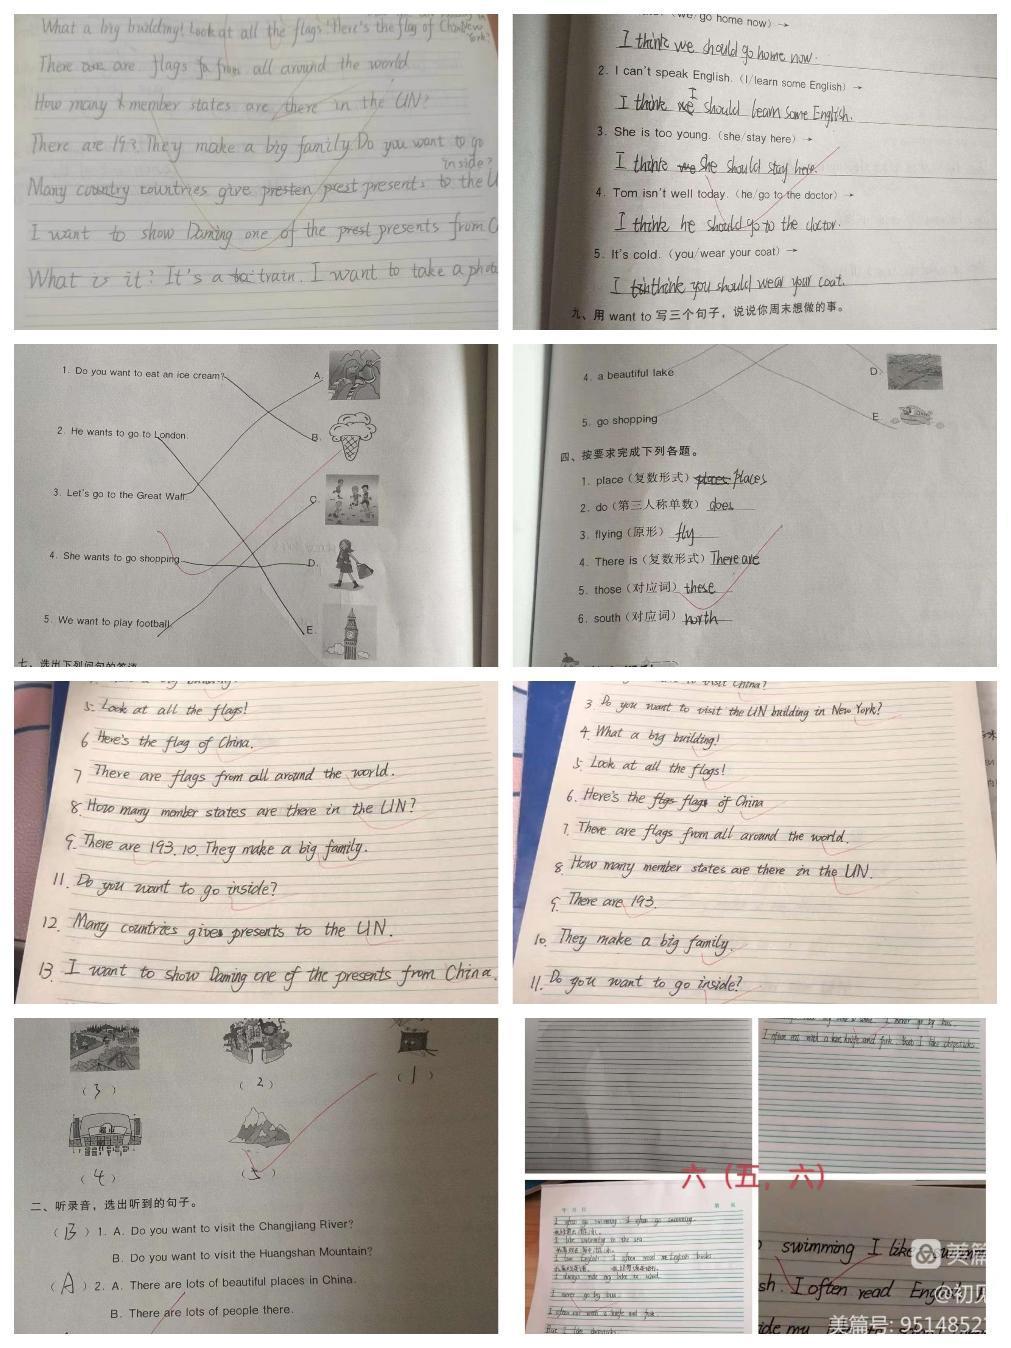 What a big building! Look at all the flags! Here's the flag of China New York?
There are are flags fo from all around the world
How many member states are there in the UN?
There are 193. They make a big family. Do you want to go
inside?
Many country countries give presten prest presents to the U
I want to show Daming one of the prest presents from C
What is it? It's a train. I want to take a photo
(we/go home now) →
I think we should go home now.
2. I can't speak English. (I/learn some English) →
I think we I should learn some English.
3. She is too young. (she/stay here) →
I think we She should stay here.
4. Tom isn't well today. (he/go to the doctor) →
I think he should go to the doctor.
5. It's cold. (you/wear your coat) →
I think you should wear your coat.
九、用 want to 写三个句子，说说你周末想做的事。
1. Do you want to eat an ice cream?
A.
2. He wants to go to London.
B.
3. Let's go to the Great Wall
C.
4. She wants to go shopping
D.
5. We want to play football
E.
七、选出下列问句的答语
4. a beautiful lake
D.
5. go shopping
E
四、按要求完成下列各题。
1. place（复数形式）places places
2. do（第三人称单数）does
3. flying（原形）fly
4. There is（复数形式）There are
5. those（对应词）these
6. south（对应词）north
5. Look at all the flags!
6 Here's the flag of China.
7 There are flags from all around the world.
8. How many member states are there in the UN?
9. There are 193. 10. They make a big family.
11. Do you want to go inside?
12. Many countries gives presents to the UN.
13. I want to show Daming one of the presents from China.
to visit China?
3 Do you want to visit the UN building in New York?
4. What a big building!
5. Look at all the flags!
6. Here's the flags flags of China
7. There are flags from all around the world.
8. How many member states are there in the UN.
9. There are 193.
10. They make a big family.
11. Do you want to go inside?
(3)
(2)
(1)
(4)
(5)
二、听录音，选出听到的句子。
(B) 1. A. Do you want to visit the Changjiang River?
B. Do you want to visit the Huangshan Mountain?
(A) 2. A. There are lots of beautiful places in China.
B. There are lots of people there.
I never go by bus.
I often eat with a knife and fork. But I like chopsticks.
六（五，六）
I often go swimming. I often go swimming.
I like swimming in the sea
I never go by bus
swimming I like
sh. I often read English
ride my
美篇
@初见
美篇号: 9514852